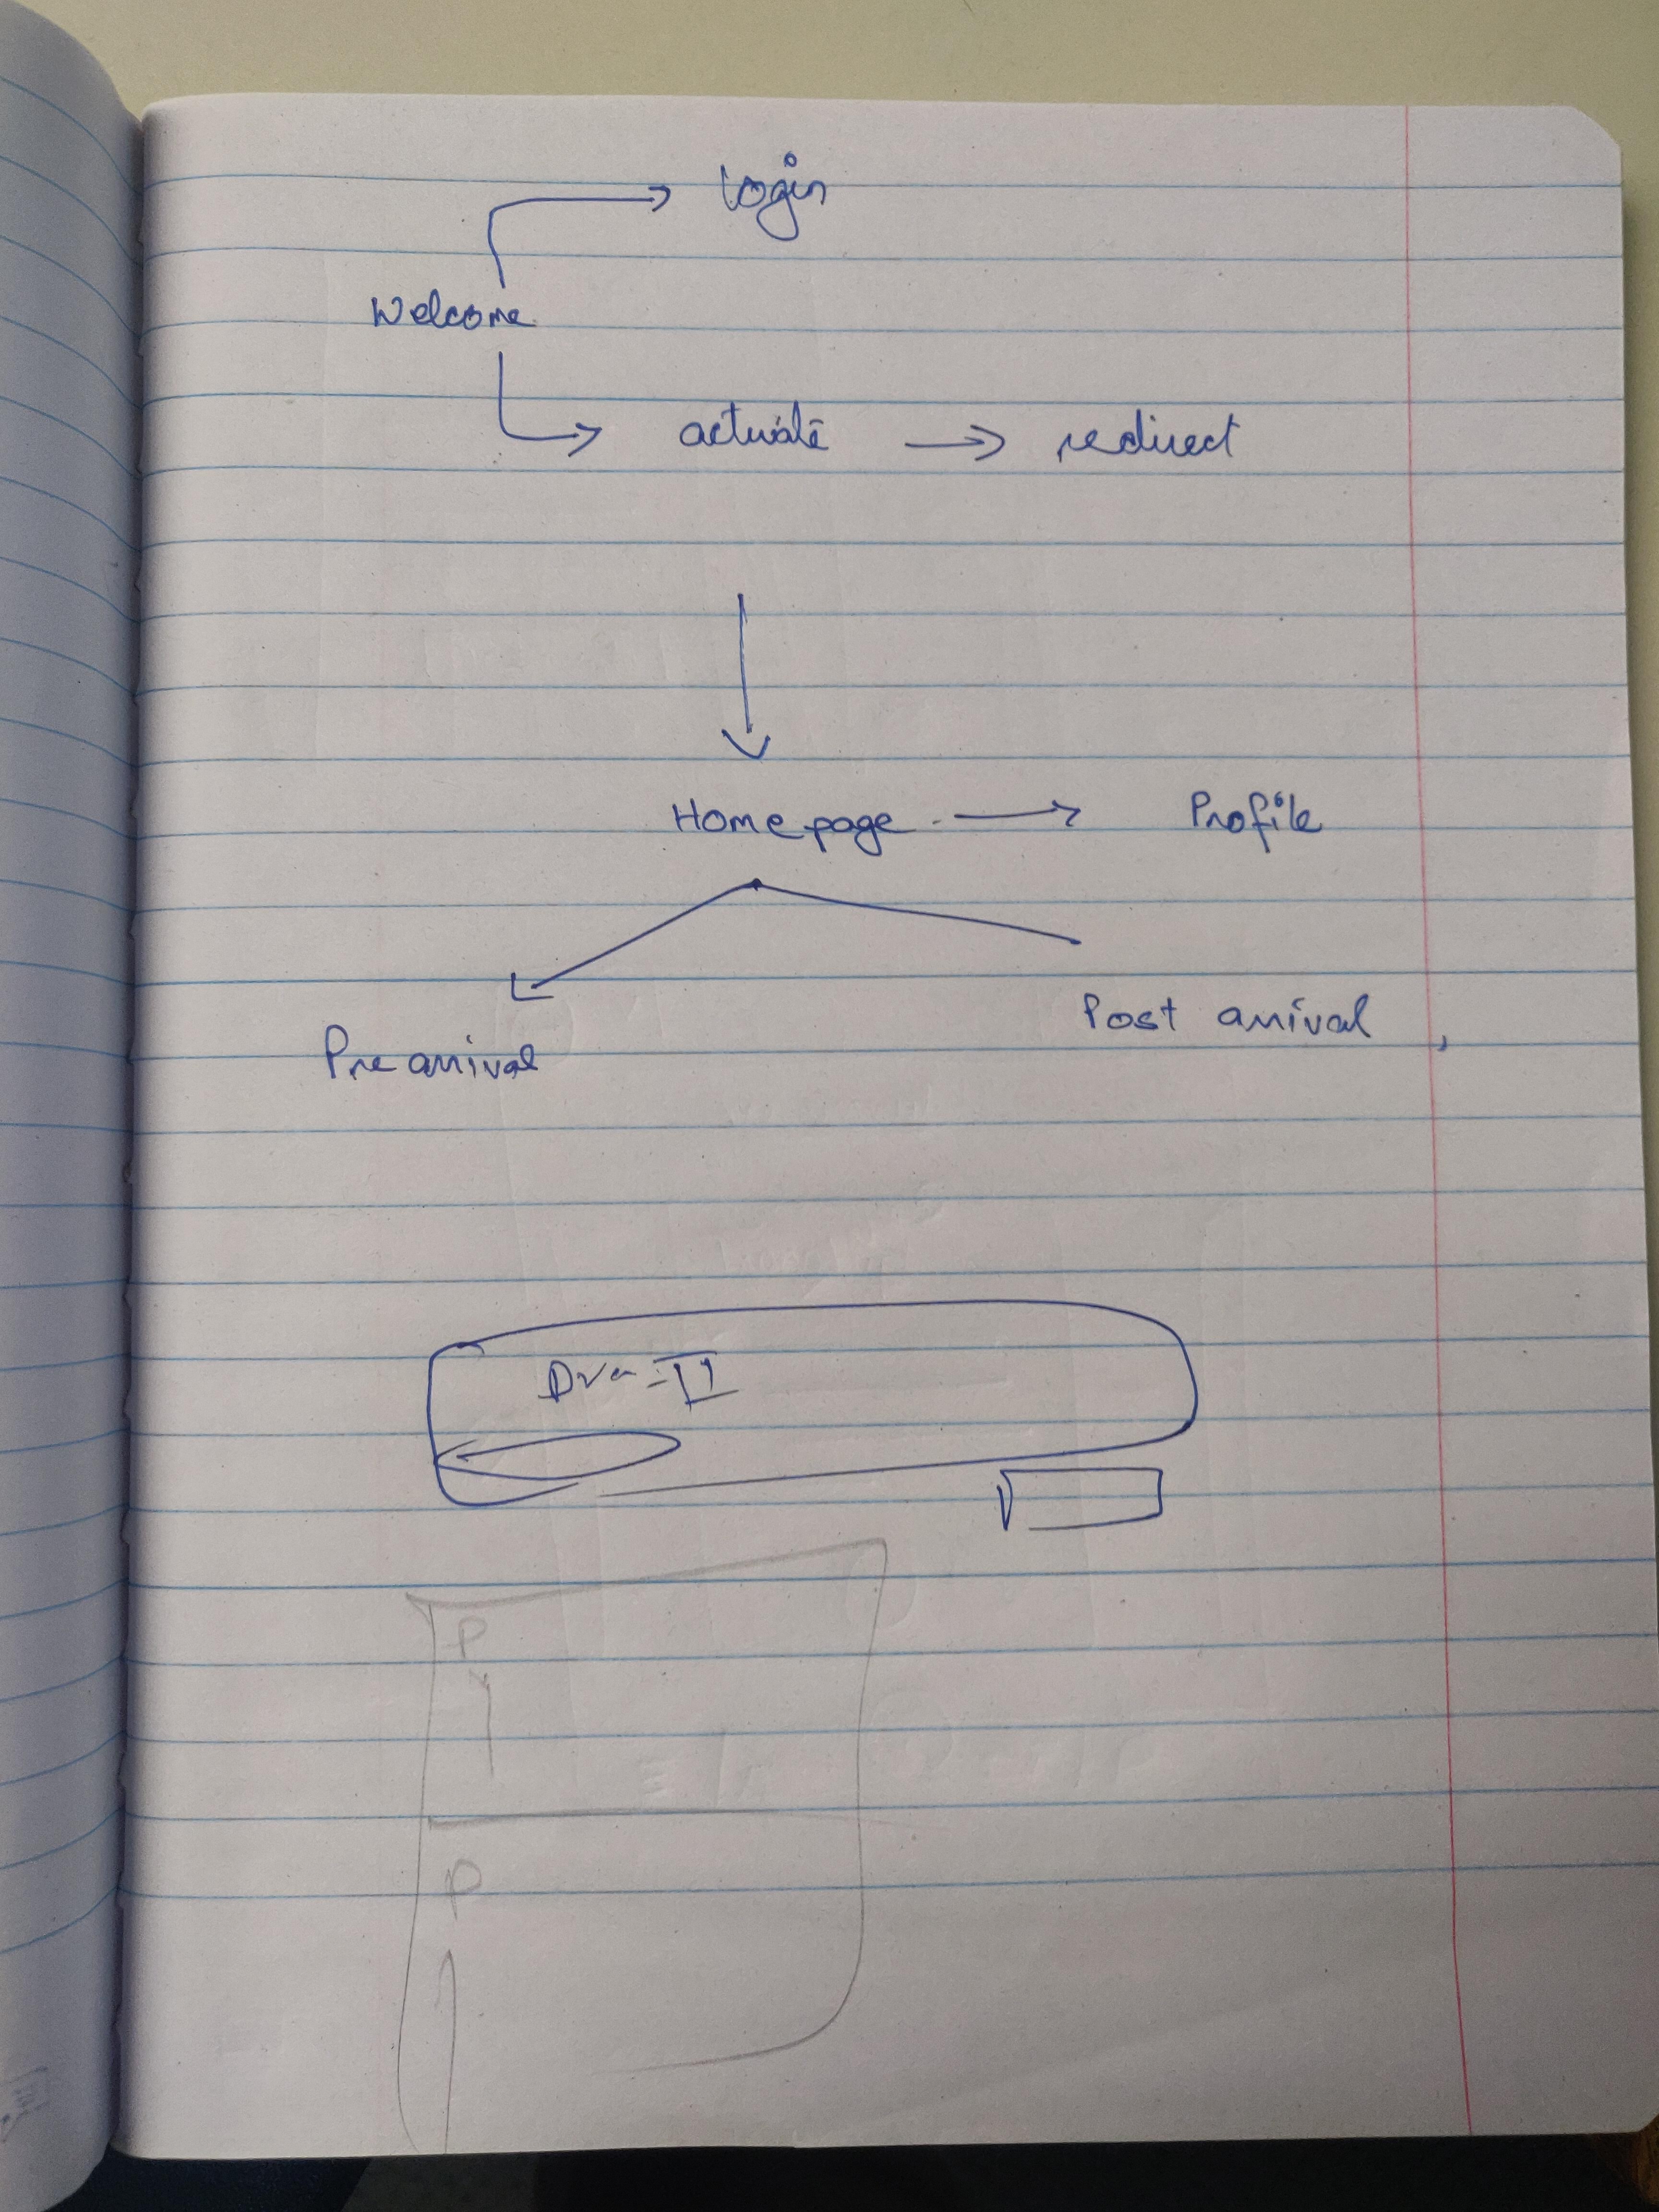 login
Welcome
activate → redirect
Home page → Profile
Post arrival
Pre arrival
P
P